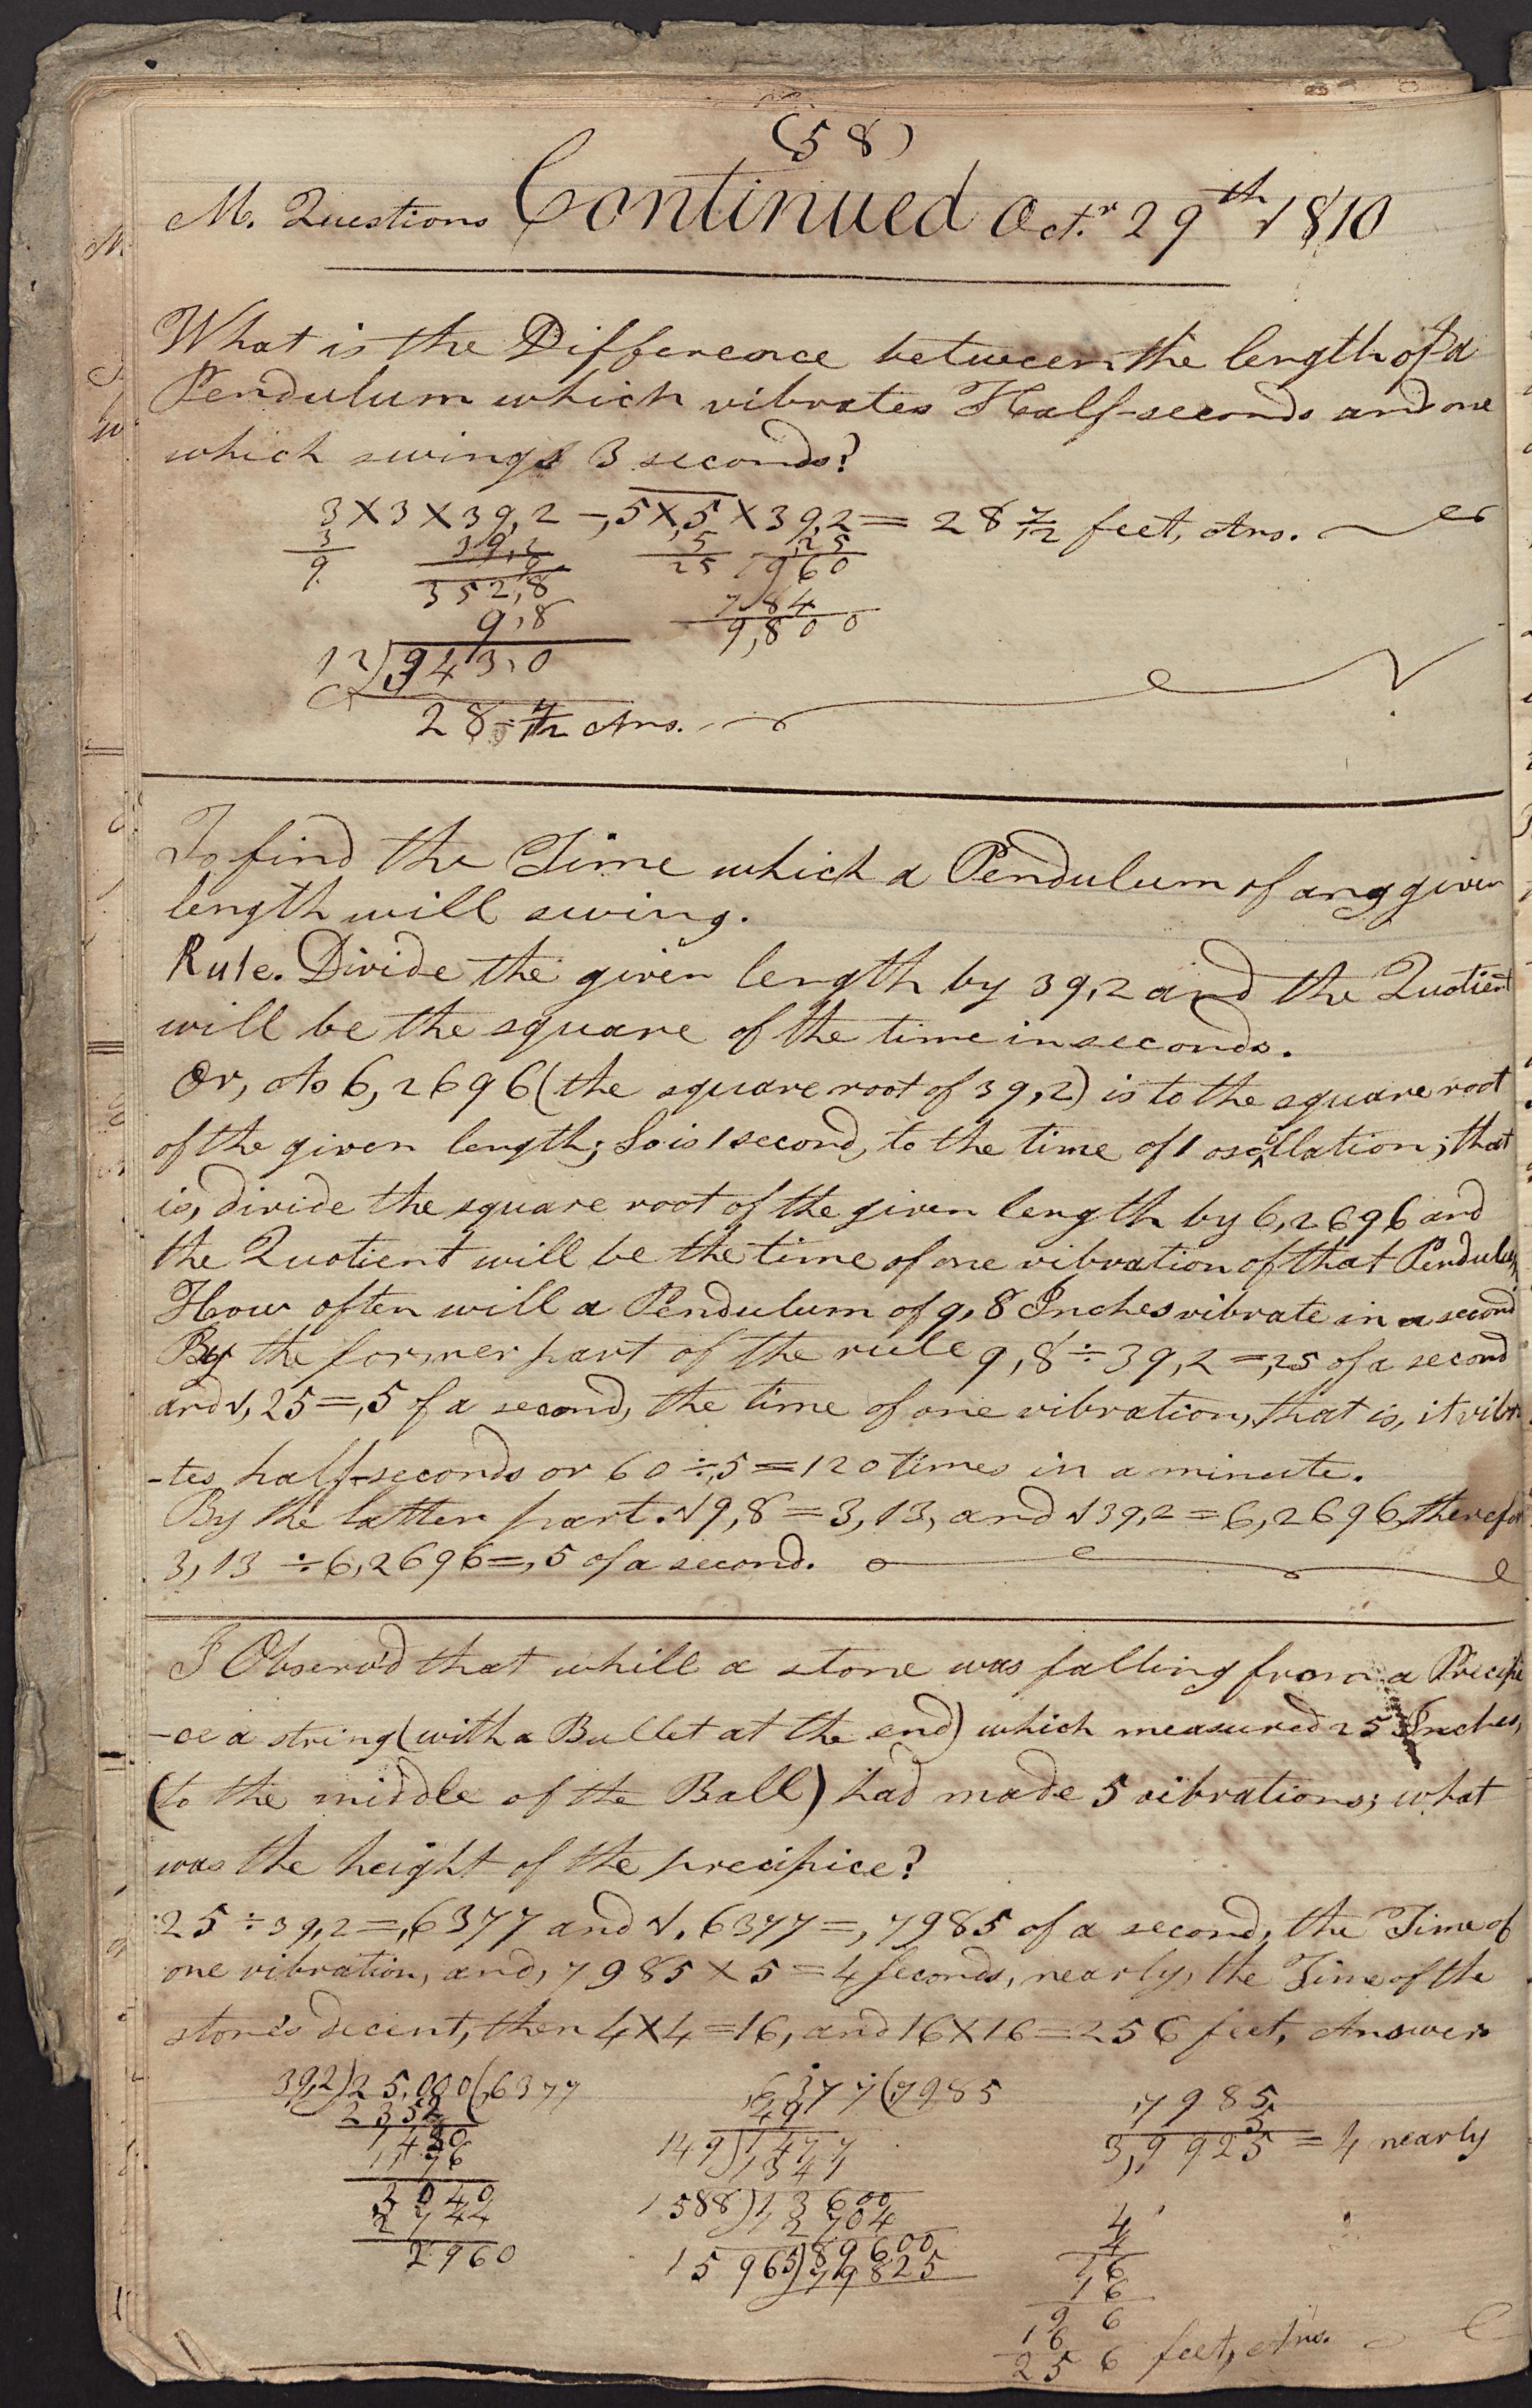 (58)
M. Questions Continued Oct.r 29th 1810
What is the Difference between the length of a
Pendulum which vibrates Half-seconds and one
which swings 3 seconds?
3 X 3 X 39,2 - ,5 X ,5 X 39,2 = 28 7/12 feet, Ans.
3 39,2 ,5 ,25
9 9 25 1960
352,8 784
9,8 9,800
12)343,0
28-7/12 Ans.
To find the Time which a Pendulum of any given
length will swing.
Rule. Divide the given length by 39,2 and the Quotient
will be the square of the time in seconds.
Or, As 6,2696 (the square root of 39,2) is to the square root
of the given length; So is 1 second, to the time of 1 oscillation; that
is, divide the square root of the given length by 6,2696 and
the Quotient will be the time of one vibration of that Pendulum
How often will a Pendulum of 9,8 Inches vibrate in a second
By the former part of the rule 9,8 ÷ 39,2 = ,25 of a second
and √,25 = ,5 of a second, the time of one vibration, that is, it vibra
-tes half-seconds or 60 ÷ ,5 = 120 times in a minute.
By the latter part. √9,8 = 3,13, and √39,2 = 6,2696, therefor
3,13 ÷ 6,2696 = ,5 of a second.
I Observ'd that whill a stone was falling from a Precipi
-ce a string (with a Bullet at the end) which measured 25 Inches,
(to the middle of the Ball) had made 5 vibrations; what
was the height of the precipice?
25 ÷ 39,2 = ,6377 and √,6377 = ,7985 of a second, the Time of
one vibration, and, 7985 X 5 = 4 seconds, nearly, the Time of the
stone's decent, then 4X4=16, and 16X16=256 feet, Answer
39,2)25,000(,6377
2352
1480
1176
3040
2744
2960
,6377(,7985
49
149)1477
1341
1588)13600
12704
15965)89600
79825
,7985
5
3,9925 = 4 nearly
4
4
16
16
96
16
256 feet, Ans.